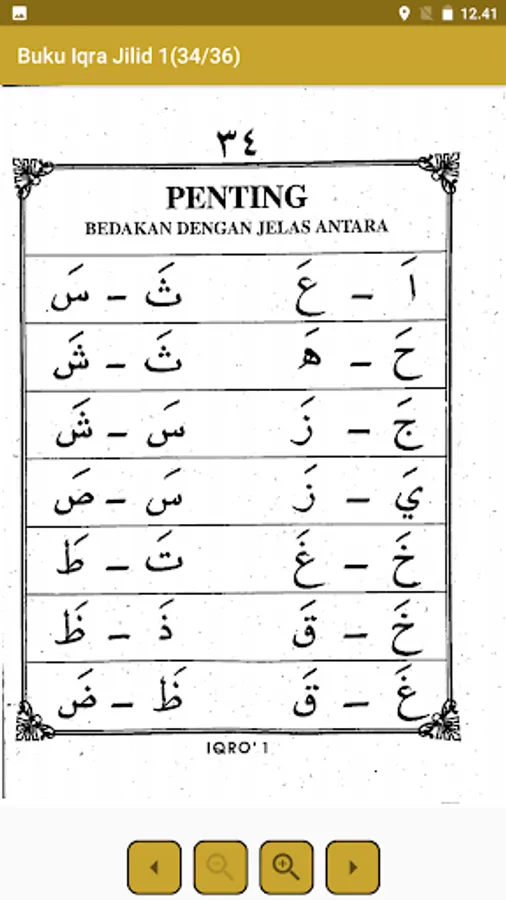 12.41
Buku Iqra Jilid 1(34/36)
٣٤
PENTING
BEDAKAN DENGAN JELAS ANTARA
اَ – عَ ثَ – سَ
حَ – هَ ثَ – شَ
جَ – زَ سَ – شَ
يَ – زَ سَ – صَ
خَ – غَ تَ – طَ
خَ – قَ ذَ – ظَ
غَ – قَ ظَ – ضَ
IQRO' 1